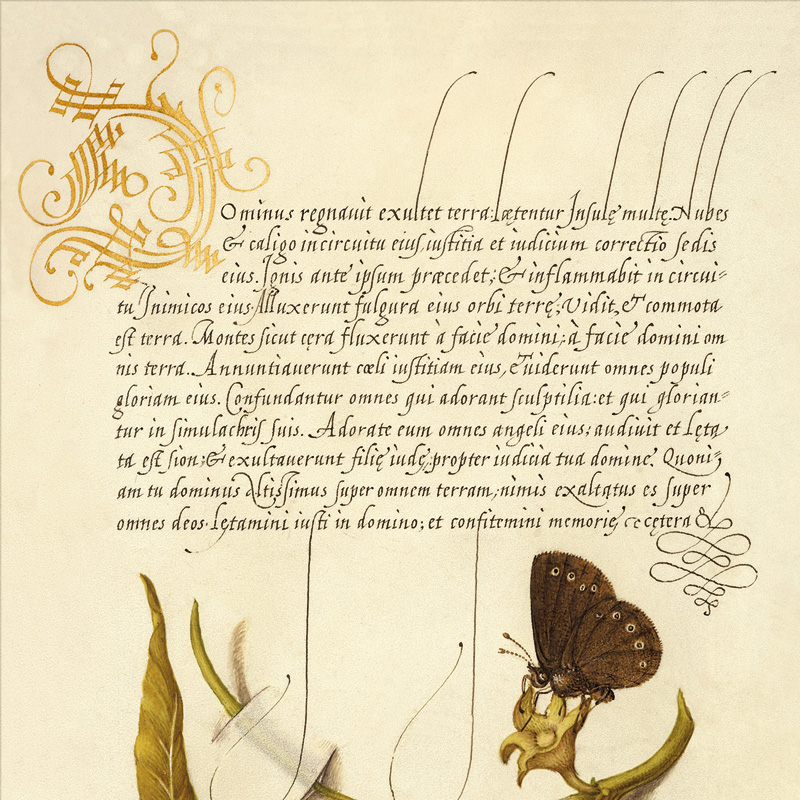 Dominus regnauit exultet terra: lætentur Insulę multę. Nubes
& caligo in circuitu eius, iustitia et iudicium correctio sedis
eius. Ignis ante ipsum præcedet; & inflammabit in circui-
tu Inimicos eius. Alluxerunt fulgura eius orbi terrę; Vidit, & commota
est terra. Montes sicut cęra fluxerunt à facie domini; à facie domini om
nis terra. Annuntiauerunt cœli iustitiam eius, & uiderunt omnes populi
gloriam eius. Confundantur omnes qui adorant sculptilia: et qui glorian=
tur in simulachris suis. Adorate eum omnes angeli eius; audiuit et lęta
ta est sion; & exultauerunt filię iudę; propter iudicia tua domine. Quoni=
am tu dominus Altissimus super omnem terram, nimis exaltatus es super
omnes deos. Lętamini iusti in domino; et confitemini memorię etcętera